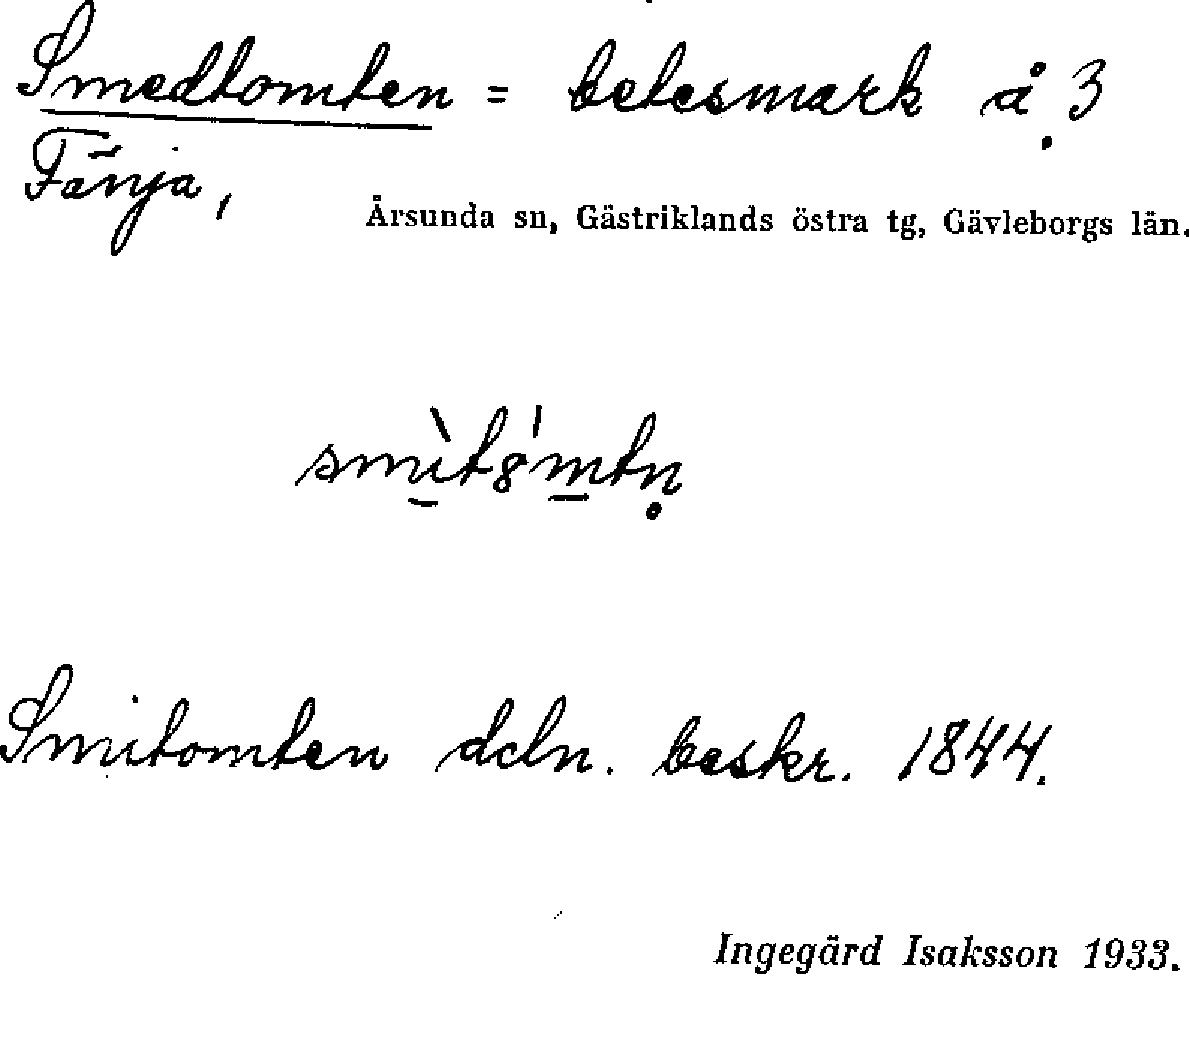 Smedtomten = betesmark å 3
Fänja,
Årsunda sn, Gästriklands östra tg, Gävleborgs län.
smìt8'mtn̥
Smitomten dcln. beskr. 1844.
Ingegärd Isaksson 1933.